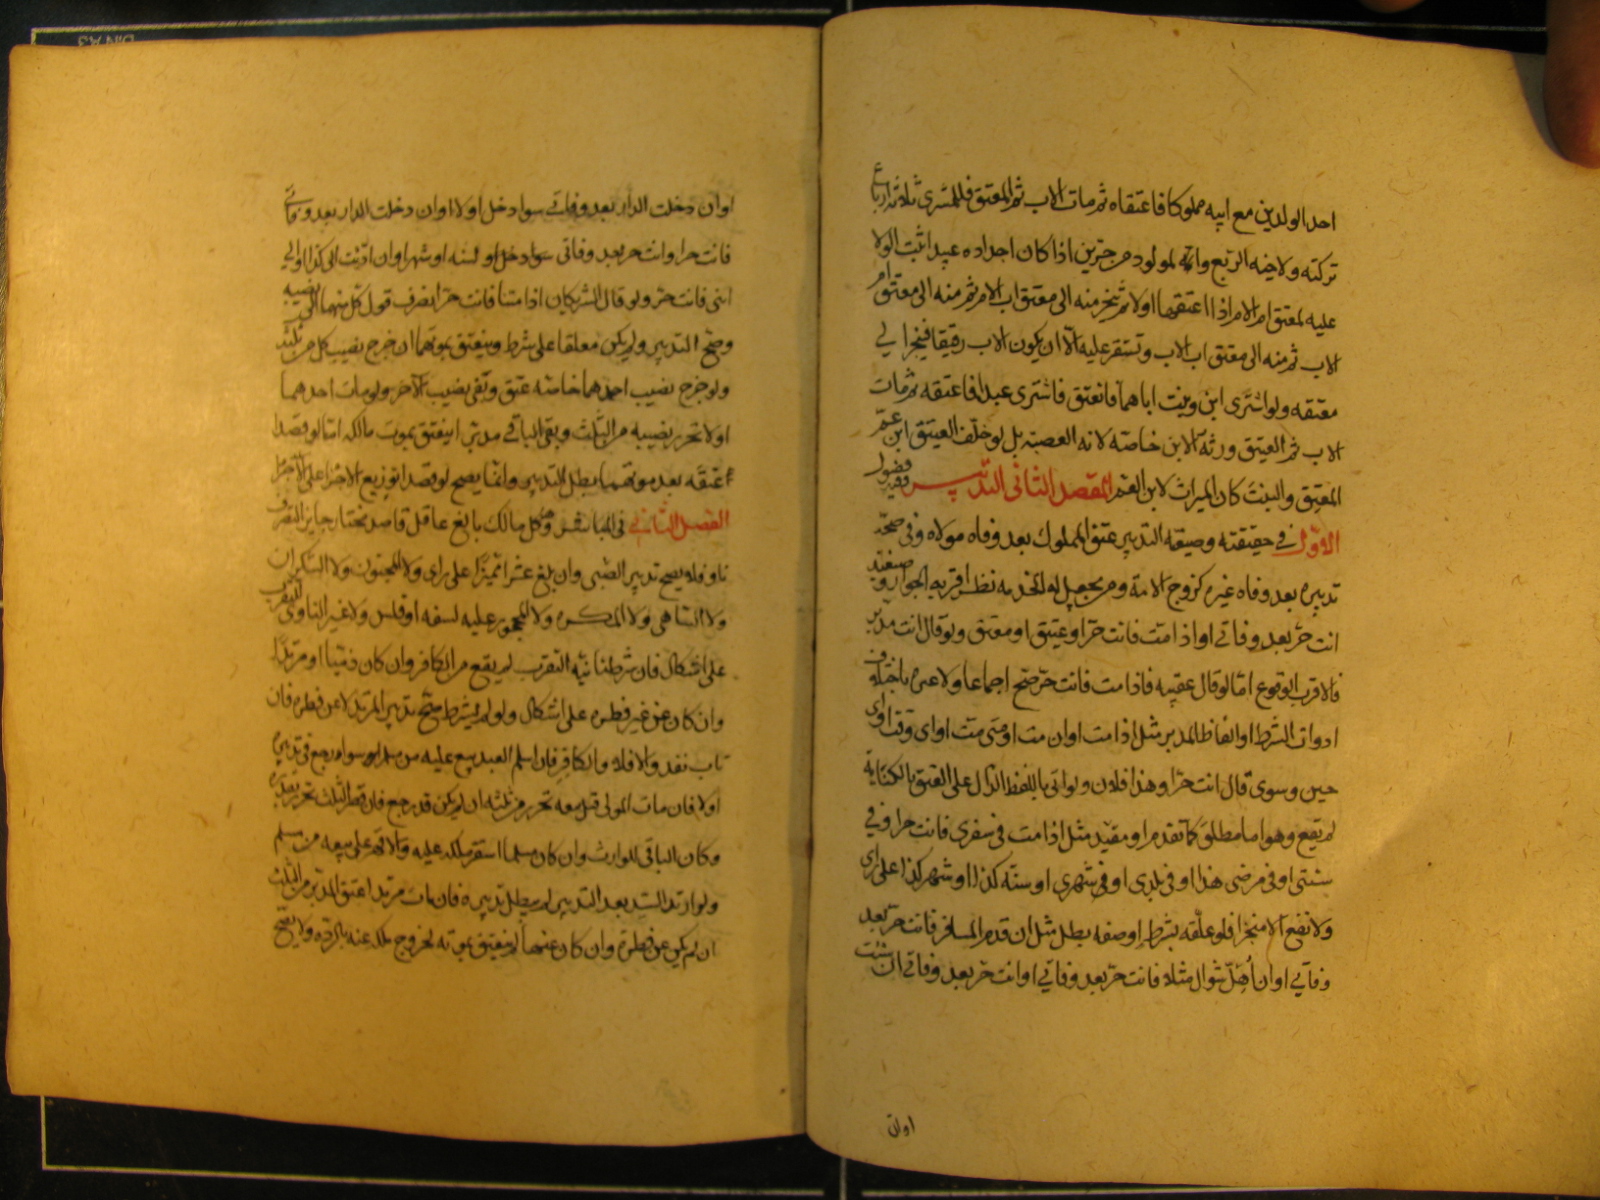 احد الولدين مع ابيه مملوكا فاعتقاه ثم مات الاب ثم المعتق فللمشترى ثلاثة ارباع
تركته ولاخيه الربع واذا لمولود مر حرين اذا كان اجداده عبيدا ثبت الولا
عليه لمعتق ام الام اذا اعتقها اولا ثم ينجر منه الى معتق اب الام ثم منه الى معتق ام
الاب ثم منه الى معتق اب الاب وتستقر عليه الا ان يكون الاب رقيقا فينجر الى
معتقه ولو اشترى ابن وبنت اباهما فانعتق فاشترى عبدا فاعتقه ثم مات
الاب ثم العتيق ورثه الابن خاصه لانه العصبه بل لو خلف العتيق ابن عم
المعتق والبنت كان الميراث لابن العم المقصد الثانى التدبير وفيه فصول
الاول فى حقيقته وصيغه التدبير عتق المملوك بعد وفاه مولاه وفى صحه
تدبيره بعد وفاه غيره كزوج الامة ومن يجعل له الخدمه نظر اقربه الجواز وصيغته
انت حر بعد وفاتى او اذا مت فانت حر او عتيق او معتق ولو قال انت مدبر
فالاقرب الوقوع اما لو قال عقيبه فاذا مت فانت حر صح اجماعا ولا عبره باختلاف
ادوات الشرط او الفاظ المدبر مثل اذا مت او ان مت او متى مت او اى وقت او اى
حين وسوى قال انت حر او هذا او فلان ولو اتى باللفظ الدال على العتق بالكناية
لم يقع وهو اما مطلق كما تقدم او مقيد مثل اذا مت فى سفرى فانت حر او فى
سنتى او فى مرضى هذا او فى بلدى او فى شهرى او سنة كذا او شهر كذا على راى
ولا تقع الا منجزا فلو علقه بشرط او صفه بطل مثل ان قدم المسافر فانت حر بعد
وفاتى او ان اهل شوال مثلا فانت حر بعد وفاتى او انت حر بعد وفاتى ان شئت
اوان
او ان دخلت الدار بعد وفاتى سوا دخل او لا او ان دخلت الدار بعد وفاتى
فانت حر او انت حر بعد وفاتى بسنه او شهر او ان اديت الى كذا او الى
ابنى فانت حر ولو قال الشريكان اذا متنا فانت حر انصرف قول كل منهما الى نصيبه
وصح التدبير ولم يكن معلقا على شرط وينعتق بموتهما ان خرج نصيب كل من ثلثه
ولو خرج نصيب احدهما خاصه عتق وبقى نصيب الاخر ولو مات احدهما
اولا تحرر نصيبه من الثلث وبقى الباقى مدبرا ينعتق بموت مالكه اما لو قصدا
عتقه بعد موتهما بطل التدبير وانما يصح لو قصدا توزيع الاجزا على الاجزا
الفصل الثانى فى المباشر وهو كل مالك بالغ عاقل قاصد مختار جايز التصرف
ناو فلا يصح تدبير الصبى وان بلغ عشرا مميزا على راى ولا المجنون ولا السكران
ولا الساهى ولا المكره ولا المحجور عليه لسفه او فلس ولا غير الناوى للتقرب
على اشكال فان شرطنا نيه التقرب لم يقع من الكافر وان كان ذميا او مرتدا
وان كان عن غير فطره على اشكال ولو لم يشترط صح تدبير المرتد لا عن فطره فان
تاب نفذ والا فلا والكافر فان اسلم العبد بيع عليه من مسلم سواء رجع فى تدبيره
اولا فان مات المولى قبل بيعه تحرر من ثلثه ان لم يكن قد رجع فان قصر الثلث تحرر بقدره
وكان الباقى للوارث وان كان مسلما استقر ملكه عليه والا قهر على بيعه من مسلم
ولو ارتد السيد بعد التدبير لم يبطل تدبيره فان مات مرتدا اعتق المدبر من الثلث
ان لم يكن عن فطرة وان كان عنها لم ينعتق بموته لخروج ملكه عنه بالرده ولا يصح